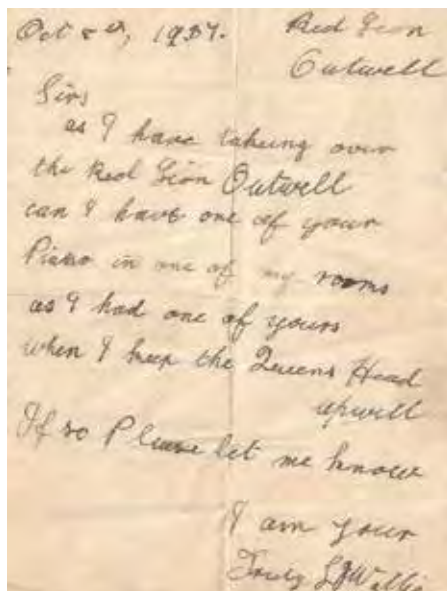 Oct 5th, 1937.
Red Lion
Outwell
Sirs
as I have takeing over
the Red Lion Outwell
can I have one of your
Piano in one of my rooms
as I had one of yours
when I keep the Queens Head
upwell
If so Please let me know
I am your
Truly